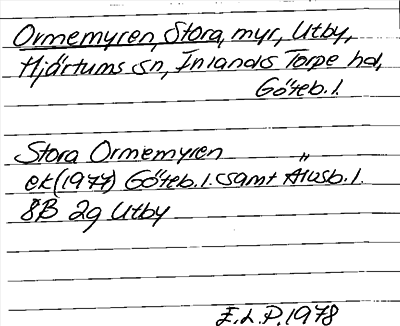 Ormemyren, Stora, myr, Utby,
Hjärtums sn, Inlands Torpe hd,
Göteb. l.
Stora Ormemyren
ek (1977) Göteb. l. samt Älvsb. l.
8B 2g Utby
E.L.P. 1978